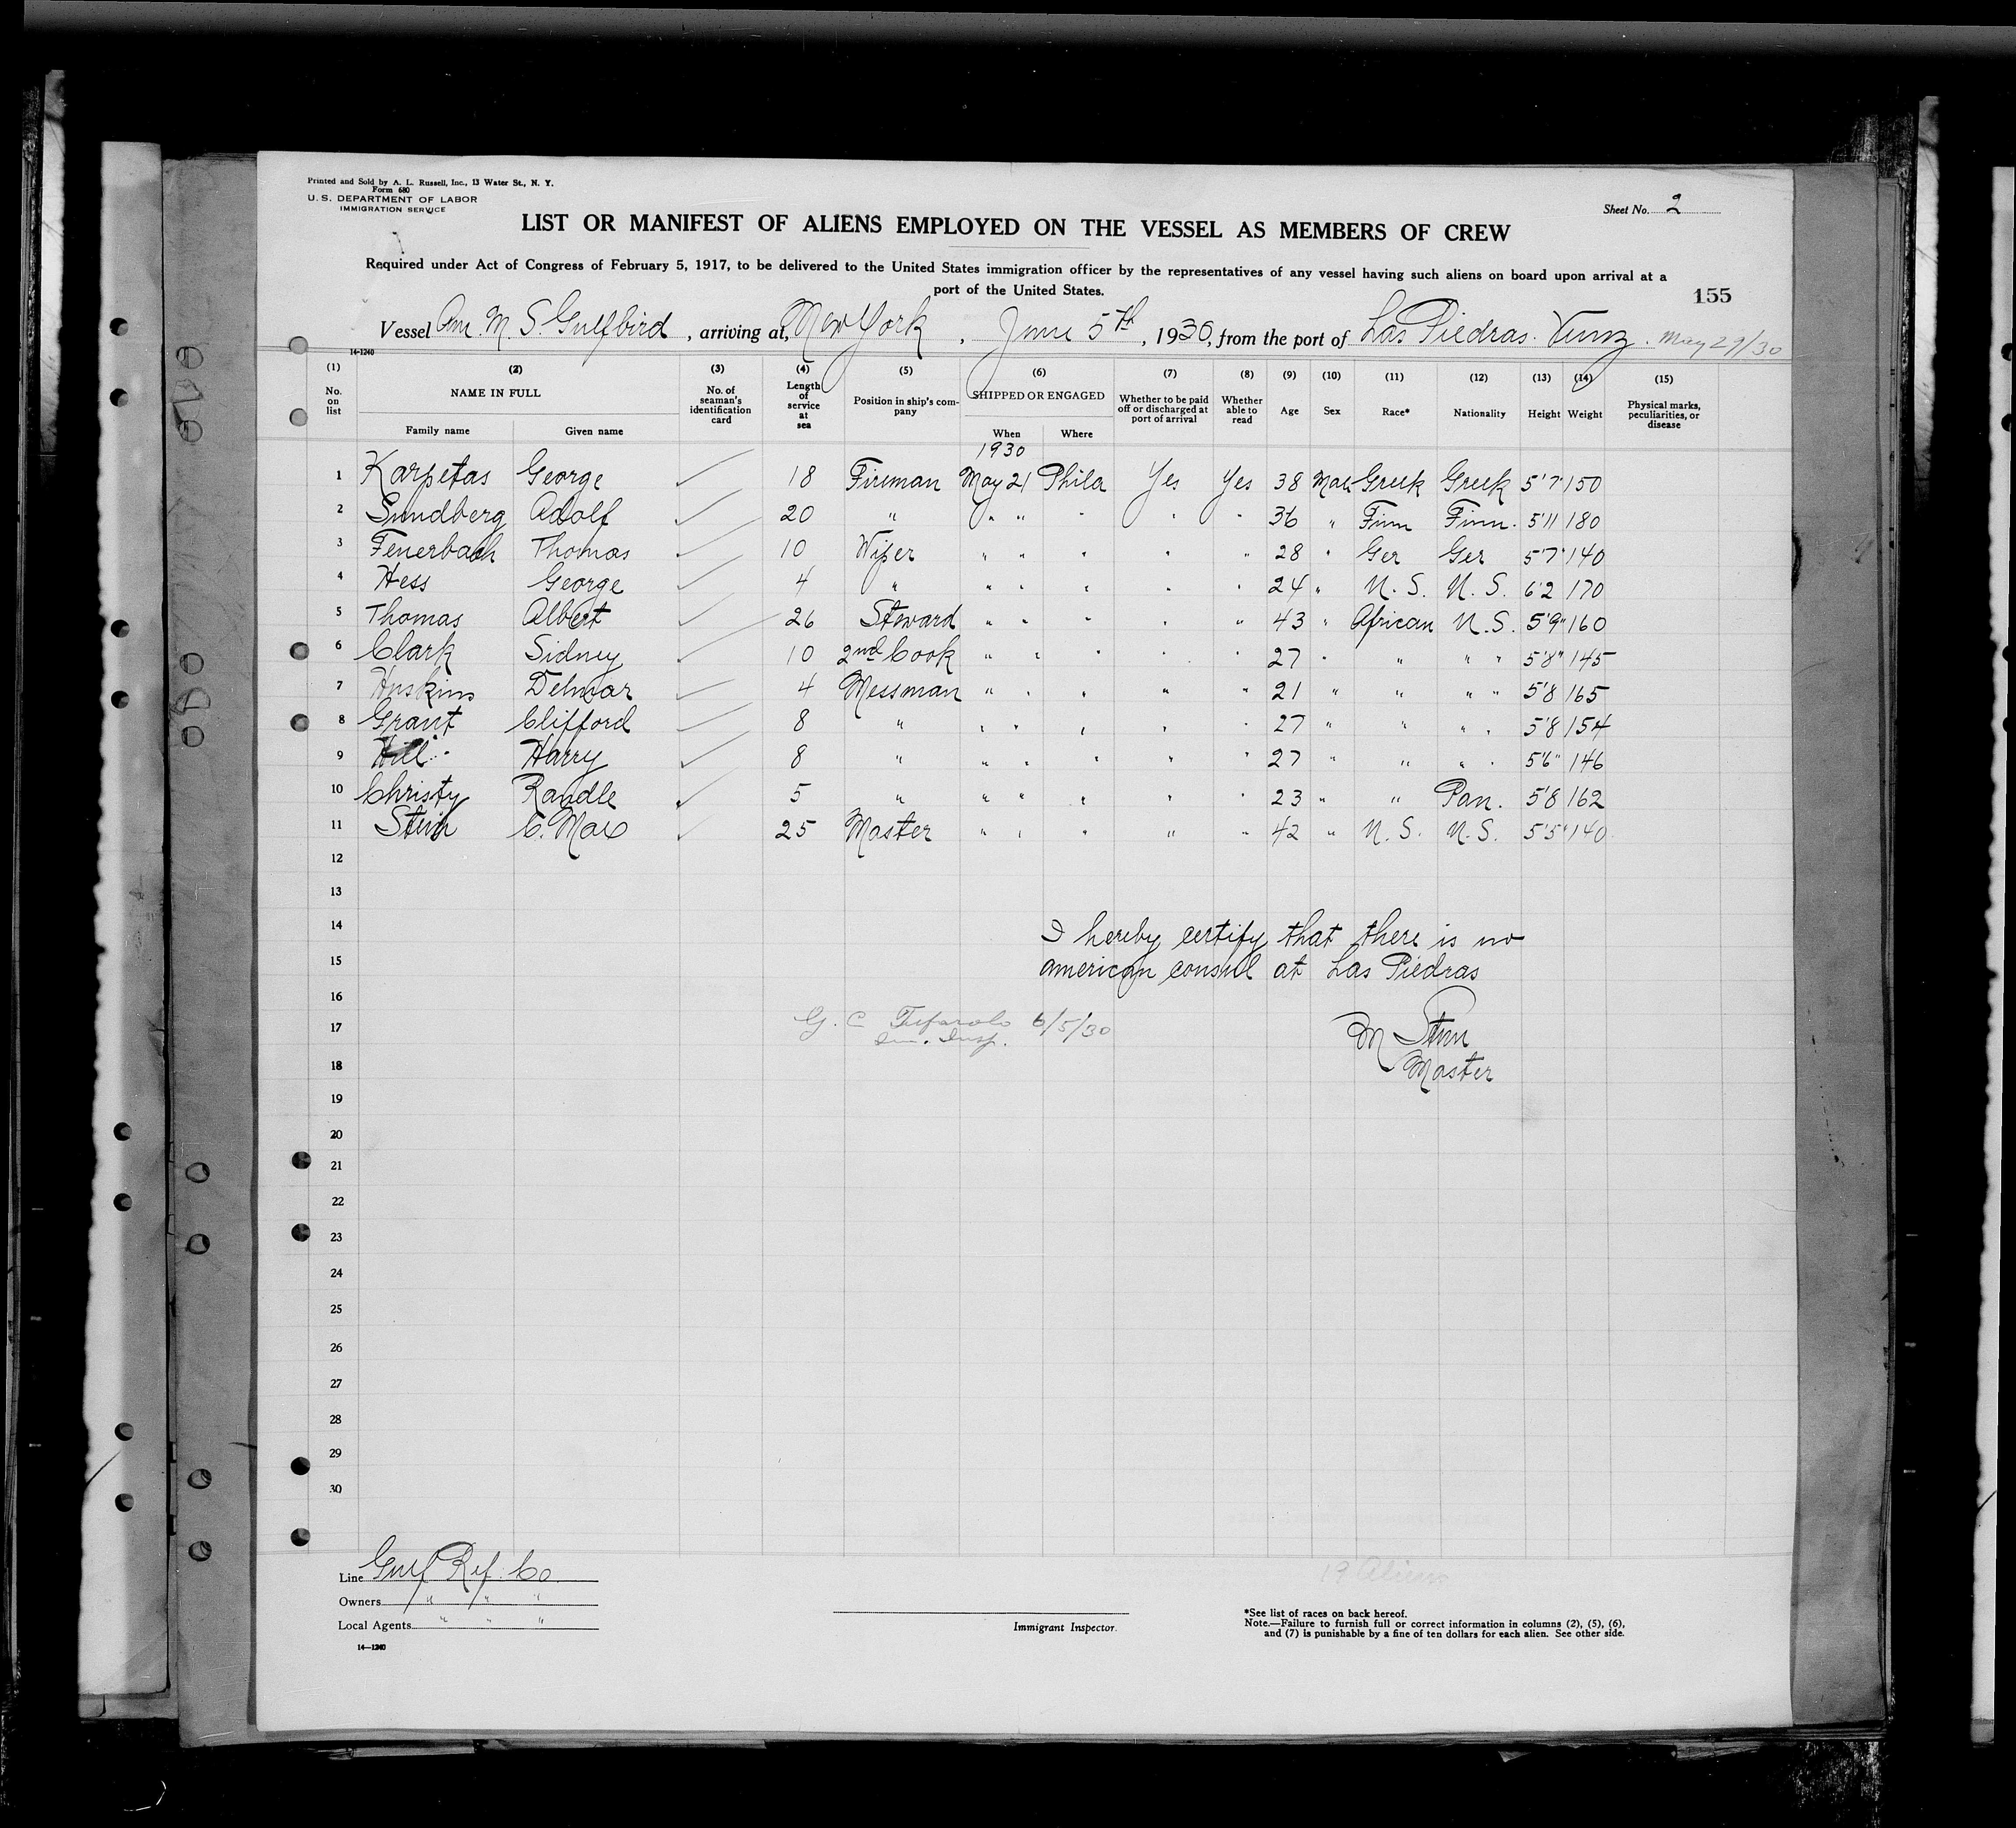 Printed and Sold by A. L. Russell, Inc., 13 Water St., N. Y.
Form 680
U. S. DEPARTMENT OF LABOR
IMMIGRATION SERVICE
Sheet No. 2
LIST OR MANIFEST OF ALIENS EMPLOYED ON THE VESSEL AS MEMBERS OF CREW
Required under Act of Congress of February 5, 1917, to be delivered to the United States immigration officer by the representatives of any vessel having such aliens on board upon arrival at a
port of the United States.
155
Vessel Am. M. S. Gulfbird, arriving at, New York, June 5th, 1930, from the port of Las Piedras. Venz. May 29/30
14-1240
(1) (2) (3) (4) (5) (6) (7) (8) (9) (10) (11) (12) (13) (14) (15)
No. on list NAME IN FULL No. of seaman's identification card Length of service at sea Position in ship's company SHIPPED OR ENGAGED Whether to be paid off or discharged at port of arrival Whether able to read Age Sex Race* Nationality Height Weight Physical marks, peculiarities, or disease
Family name Given name When Where
1930
1 Karpetas George ✓ 18 Fireman May 21 Phila Yes Yes 38 Male Greek Greek 5'7" 150
2 Sundberg Adolf ✓ 20 " " " " " " 36 " Finn Finn. 5'11 180
3 Fenerbach Thomas ✓ 10 Wiper " " " " " 28 " Ger Ger 5'7" 140
4 Hess George ✓ 4 " " " " " " 24 " U. S. U. S. 6'2 170
5 Thomas Albert ✓ 26 Steward " " " " " 43 " African U. S. 5'9" 160
6 Clark Sidney ✓ 10 2nd Cook " " " " " 27 " " " " 5'8" 145
7 Huskins Delmar ✓ 4 Messman " " " " " 21 " " " " 5'8 165
8 Grant Clifford ✓ 8 " " " " " " 27 " " " " 5'8 154
9 Hill Harry ✓ 8 " " " " " " 27 " " " " 5'6" 146
10 Christy Randle ✓ 5 " " " " " " 23 " " Pan. 5'8 162
11 Stein C. Max ✓ 25 Master " " " " " 42 " U. S. U. S. 5'5" 140
12
13
14 I hereby certify that there is no
15 american consul at Las Piedras
16
17 G. C. 6/5/30 M Stein
Im. Insp.
18 Master
19
20
21
22
23
24
25
26
27
28
29
30
Line Gulf Ref. Co.
Owners " " "
Local Agents " " "
14—1240
Immigrant Inspector.
19 Aliens
*See list of races on back hereof.
Note.—Failure to furnish full or correct information in columns (2), (5), (6),
and (7) is punishable by a fine of ten dollars for each alien. See other side.